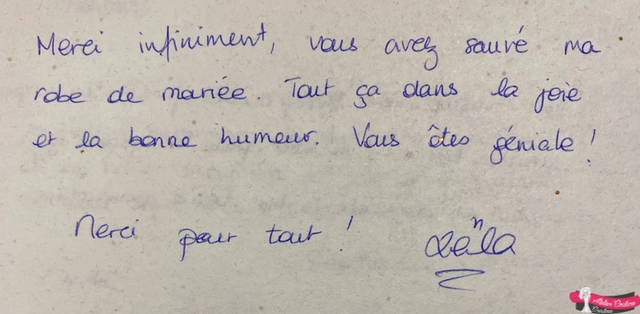 Merci infiniment, vous avez sauvé ma
robe de mariée. Tout ça dans la joie
et la bonne humeur. Vous êtes géniale !
Merci pour tout !